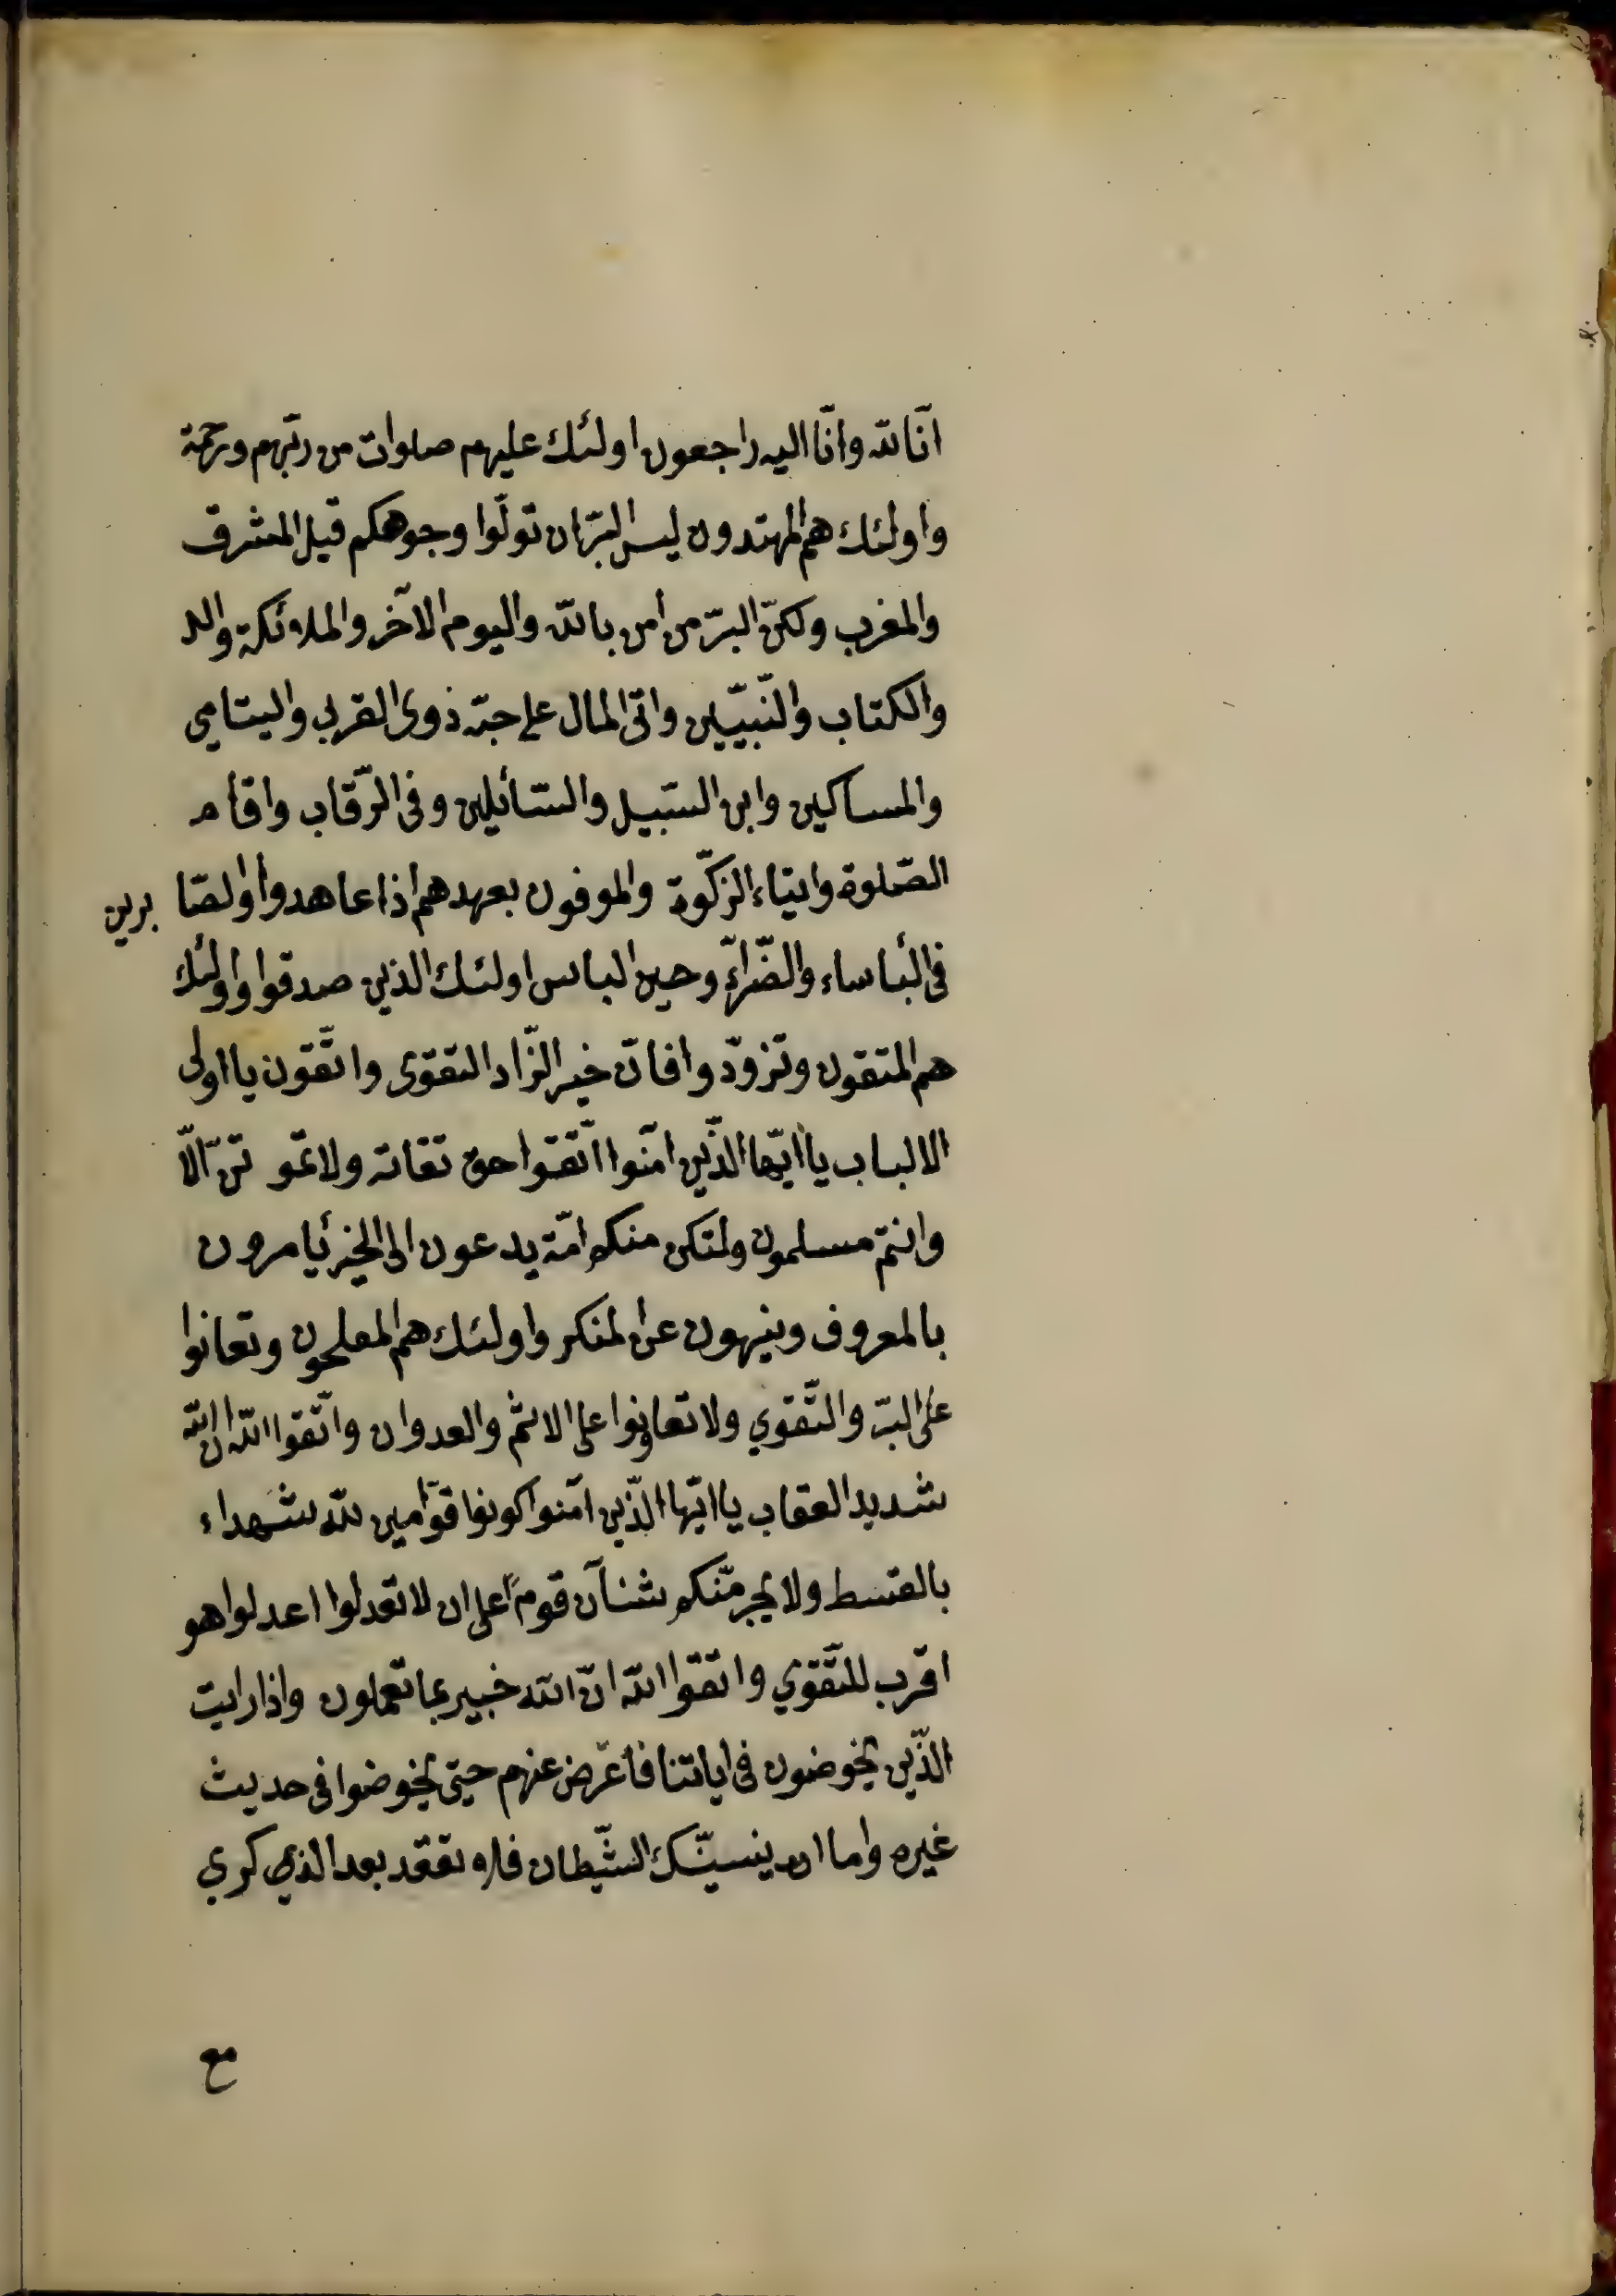 انّا لله وانّا اليه راجعون اولئك عليهم صلوات من ربّهم ورحمة
واولئك هم المهتدون ليس البرّ ان تولّوا وجوهكم قبل المشرق
والمغرب ولكنّ البرّ من أمن بالله واليوم الآخر والملائكة وال
والكتاب والنّبيّين واتى المال على حبّه ذوى القربى واليتامي
والمساكين وابن السّبيل والسّائلين وفى الرّقاب واقام
الصّلوة وايتاء الزّكوة والموفون بعهدهم اذا عاهدوا اولصّا برين
فى البأساء والضّراءّ وحين الباس اولئك الذين صدقوا واولئك
هم المتقون وتزوّدوا فانّ خير الزّاد التقوى واتّقون يا اولى
الالباب يا ايّها الّذين آمنوا اتّقوا حق تقاته ولا تموتنّ الّا
وانتم مسلمون ولتكن منكم امّة يدعون الى الخير يأمرون
بالمعروف وينهون عن المنكر واولئك هم المفلحون وتعانوا
على البرّ والتّقوي ولا تعاونوا على الاثم والعدوان واتّقوا الله ان الله
شديد العقاب يا ايّها الّذين آمنوا كونوا قوّامين لله شهداء
بالقسط ولا يجرمنّكم شنآن قوم على ان لا تعدلوا اعدلوا هو
اقرب للتّقوي واتقوا الله انّ الله خبير بما تعملون واذا رايت
الذّين يخوضون فى اياتنا فأعرض عنهم حتى يخوضوا فى حديث
غيره واما ان ينسينّك الشّيطان فلا تقعد بعد الذي كري
مع